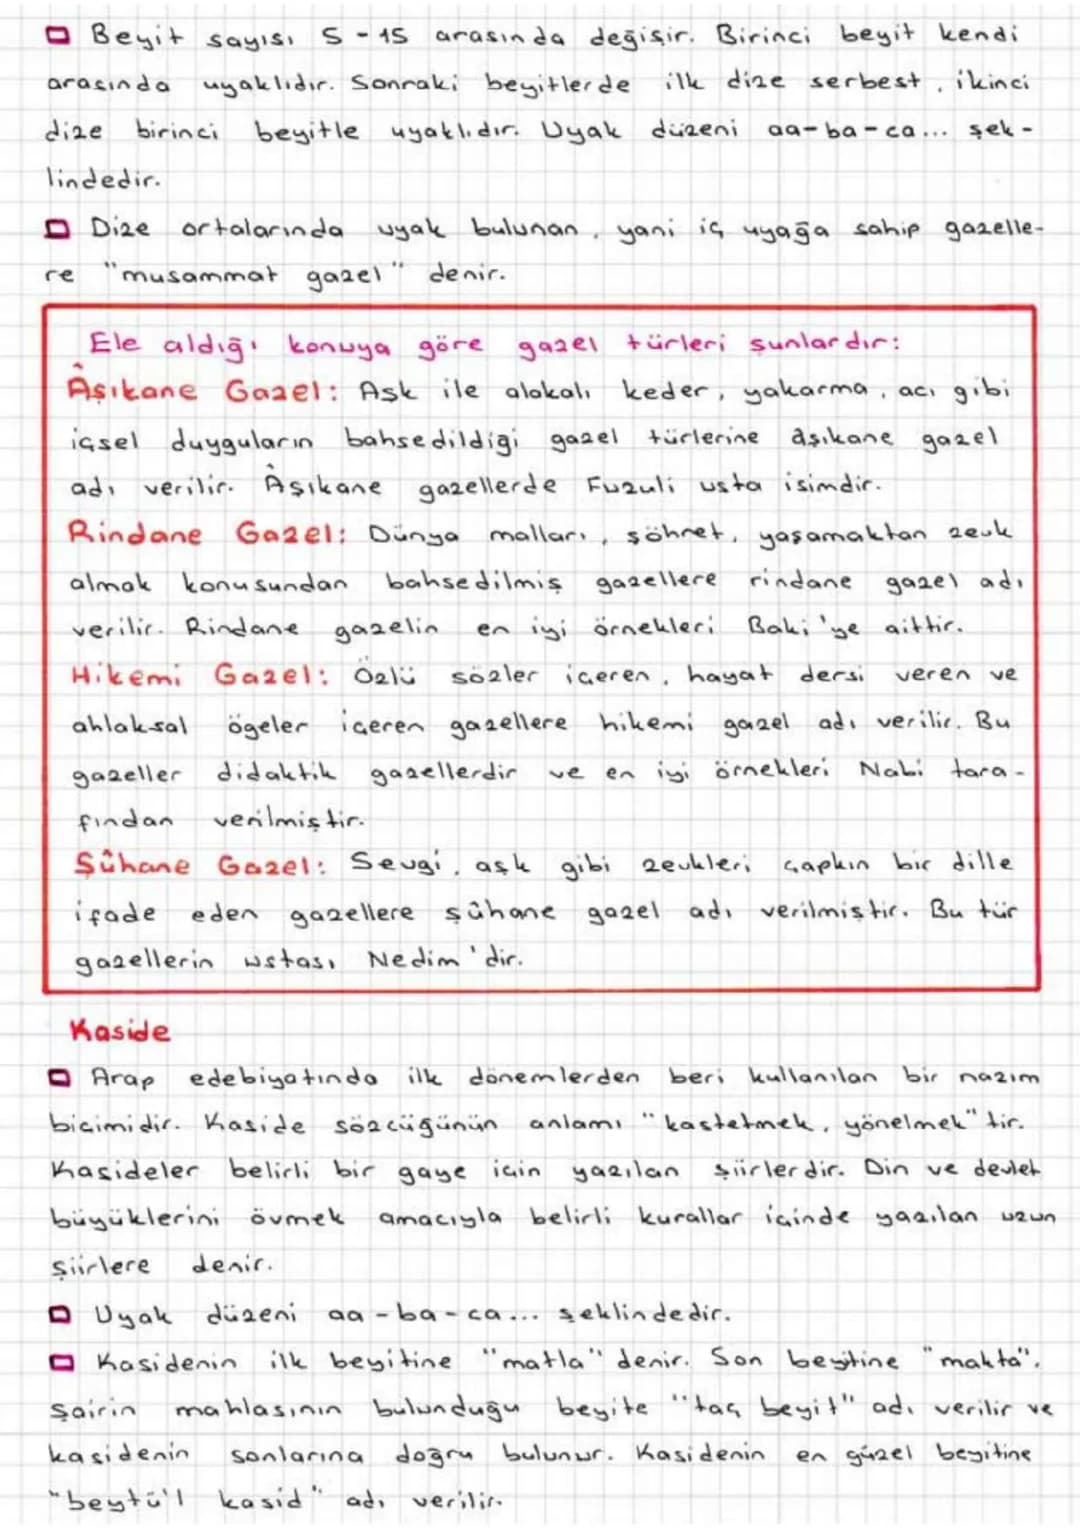 Beyit sayısı 5-15 arasında değişir. Birinci beyit kendi
arasında uyaklıdır. Sonraki beyitlerde ilk dize serbest, ikinci
dize birinci beyitle uyaklıdır. Uyak düzeni aa-ba-ca... şek-
lindedir.
Dize ortalarında uyak bulunan, yani iç uyağa sahip gazelle-
re "musammat gazel" denir.
Ele aldığı konuya göre gazel türleri şunlardır:
Âşıkane Gazel: Aşk ile alakalı keder, yakarma, acı gibi
içsel duyguların bahsedildiği gazel türlerine âşıkane gazel
adı verilir. Âşıkane gazellerde Fuzuli usta isimdir.
Rindane Gazel: Dünya malları, şöhret, yaşamaktan zevk
almak konusundan bahsedilmiş gazellere rindane gazel adı
verilir. Rindane gazelin en iyi örnekleri Baki'ye aittir.
Hikemi Gazel: Özlü sözler içeren, hayat dersi veren ve
ahlaksal ögeler içeren gazellere hikemi gazel adı verilir. Bu
gazeller didaktik gazellerdir ve en iyi örnekleri Nabi tara-
fından verilmiştir.
Şûhane Gazel: Sevgi, aşk gibi zevkleri çapkın bir dille
ifade eden gazellere şûhane gazel adı verilmiştir. Bu tür
gazellerin ustası Nedim'dir.
Kaside
Arap edebiyatında ilk dönemlerden beri kullanılan bir nazım
biçimidir. Kaside sözcüğünün anlamı "kastetmek, yönelmek"tir.
Kasideler belirli bir gaye için yazılan şiirlerdir. Din ve devlet
büyüklerini övmek amacıyla belirli kurallar içinde yazılan uzun
şiirlere denir.
Uyak düzeni aa-ba-ca... şeklindedir.
Kasidenin ilk beyitine "matla" denir. Son beyitine "makta",
şairin mahlasının bulunduğu beyite "taç beyit" adı verilir ve
kasidenin sonlarına doğru bulunur. Kasidenin en güzel beyitine
"beytü'l kasid" adı verilir.